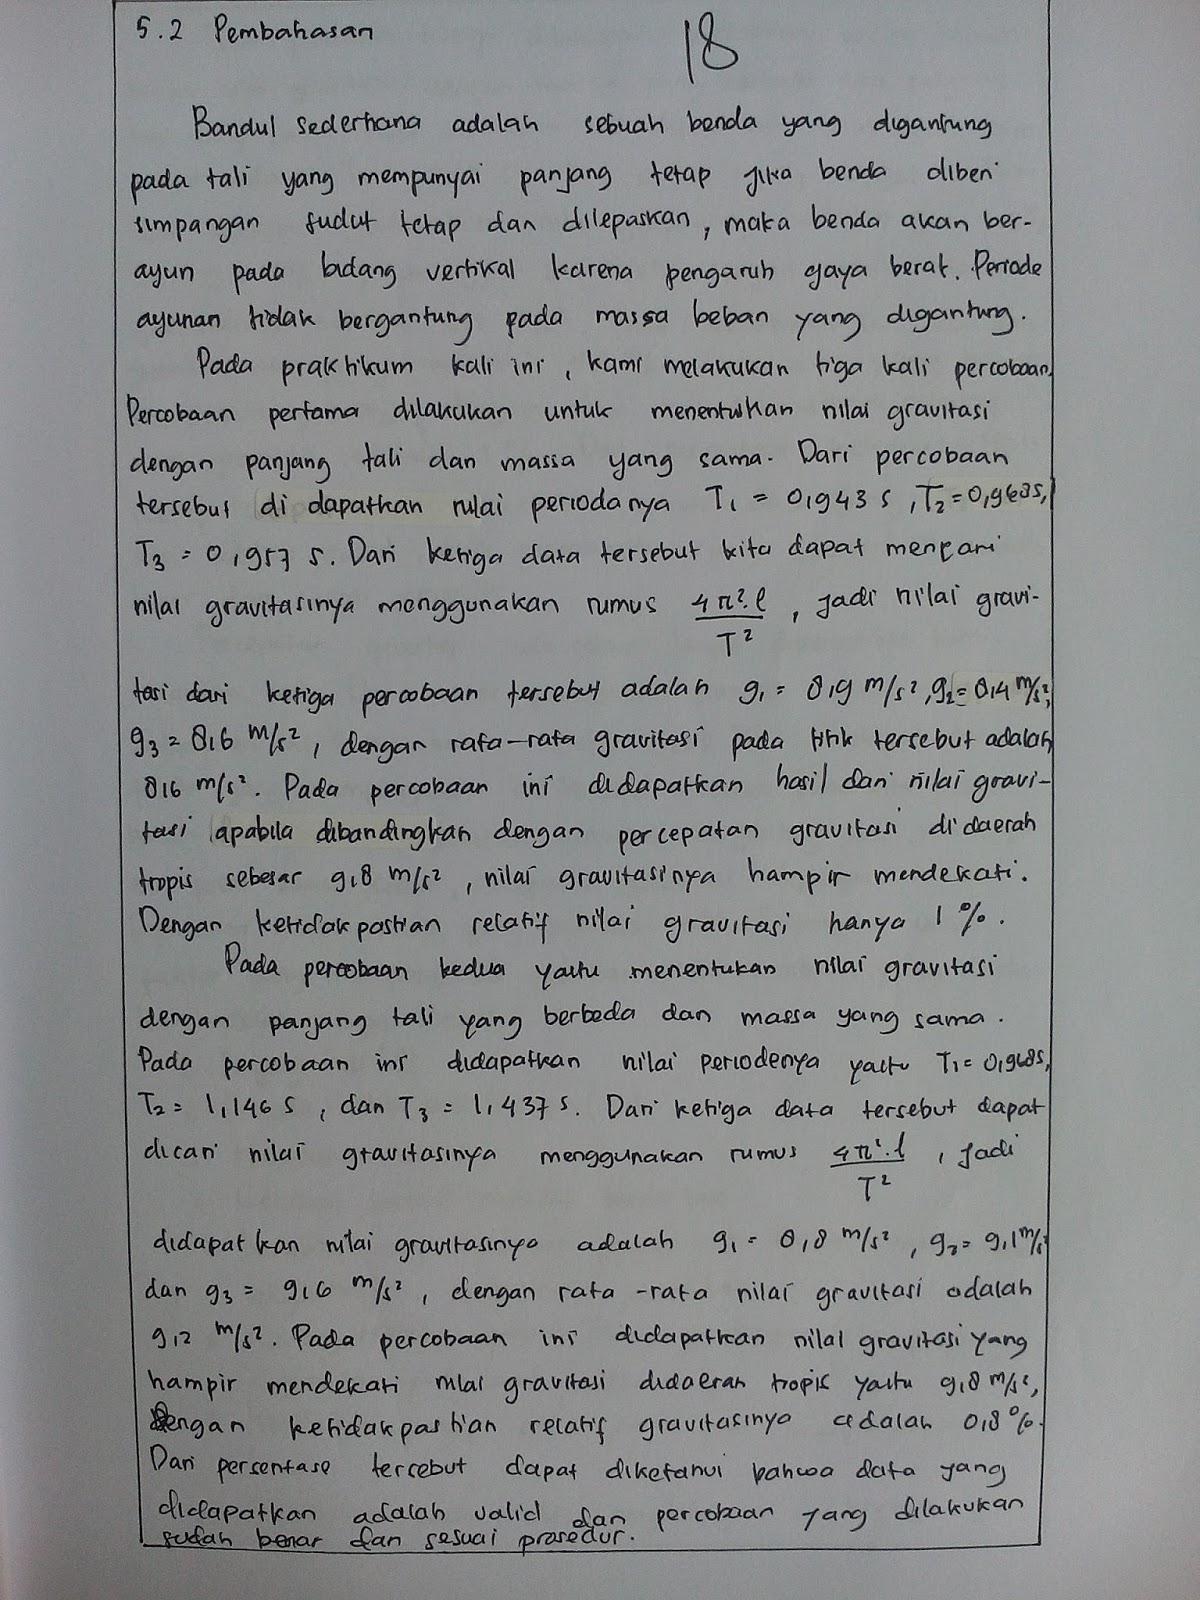 5.2 Pembahasan
18
Bandul sederhana adalah sebuah benda yang digantung
pada tali yang mempunyai panjang tetap jika benda diberi
simpangan sudut tetap dan dilepaskan, maka benda akan ber-
ayun pada bidang vertikal karena pengaruh gaya berat. Periode
ayunan tidak bergantung pada massa beban yang digantung.
Pada praktikum kali ini, kami melakukan tiga kali percobaan.
Percobaan pertama dilakukan untuk menentukan nilai gravitasi
dengan panjang tali dan massa yang sama. Dari percobaan
tersebut di dapatkan nilai periodanya T1 = 0,943 s, T2 = 0,968s,
T3 = 0,957 s. Dari ketiga data tersebut kita dapat mencari
nilai gravitasinya menggunakan rumus 4π².l / T², jadi nilai gravi-
tasi dari ketiga percobaan tersebut adalah g1 = 8,9 m/s², g2 = 8,4 m/s²,
g3 = 8,6 m/s², dengan rata-rata gravitasi pada titik tersebut adalah
8,6 m/s². Pada percobaan ini didapatkan hasil dari nilai gravi-
tasi apabila dibandingkan dengan percepatan gravitasi di daerah
tropis sebesar 9,8 m/s², nilai gravitasinya hampir mendekati.
Dengan ketidakpastian relatif nilai gravitasi hanya 1 %.
Pada percobaan kedua yaitu menentukan nilai gravitasi
dengan panjang tali yang berbeda dan massa yang sama.
Pada percobaan ini didapatkan nilai periodenya yaitu T1 = 0,968s,
T2 = 1,146 s, dan T3 = 1,437 s. Dari ketiga data tersebut dapat
dicari nilai gravitasinya menggunakan rumus 4π².l / T², jadi
didapatkan nilai gravitasinya adalah g1 = 8,8 m/s², g2 = 9,1 m/s²
dan g3 = 9,6 m/s², dengan rata-rata nilai gravitasi adalah
9,12 m/s². Pada percobaan ini didapatkan nilai gravitasi yang
hampir mendekati nilai gravitasi didaerah tropis yaitu 9,8 m/s²,
Dengan ketidakpastian relatif gravitasinya adalah 0,8 %.
Dari persentase tersebut dapat diketahui bahwa data yang
didapatkan adalah valid dan percobaan yang dilakukan
sudah benar dan sesuai prosedur.